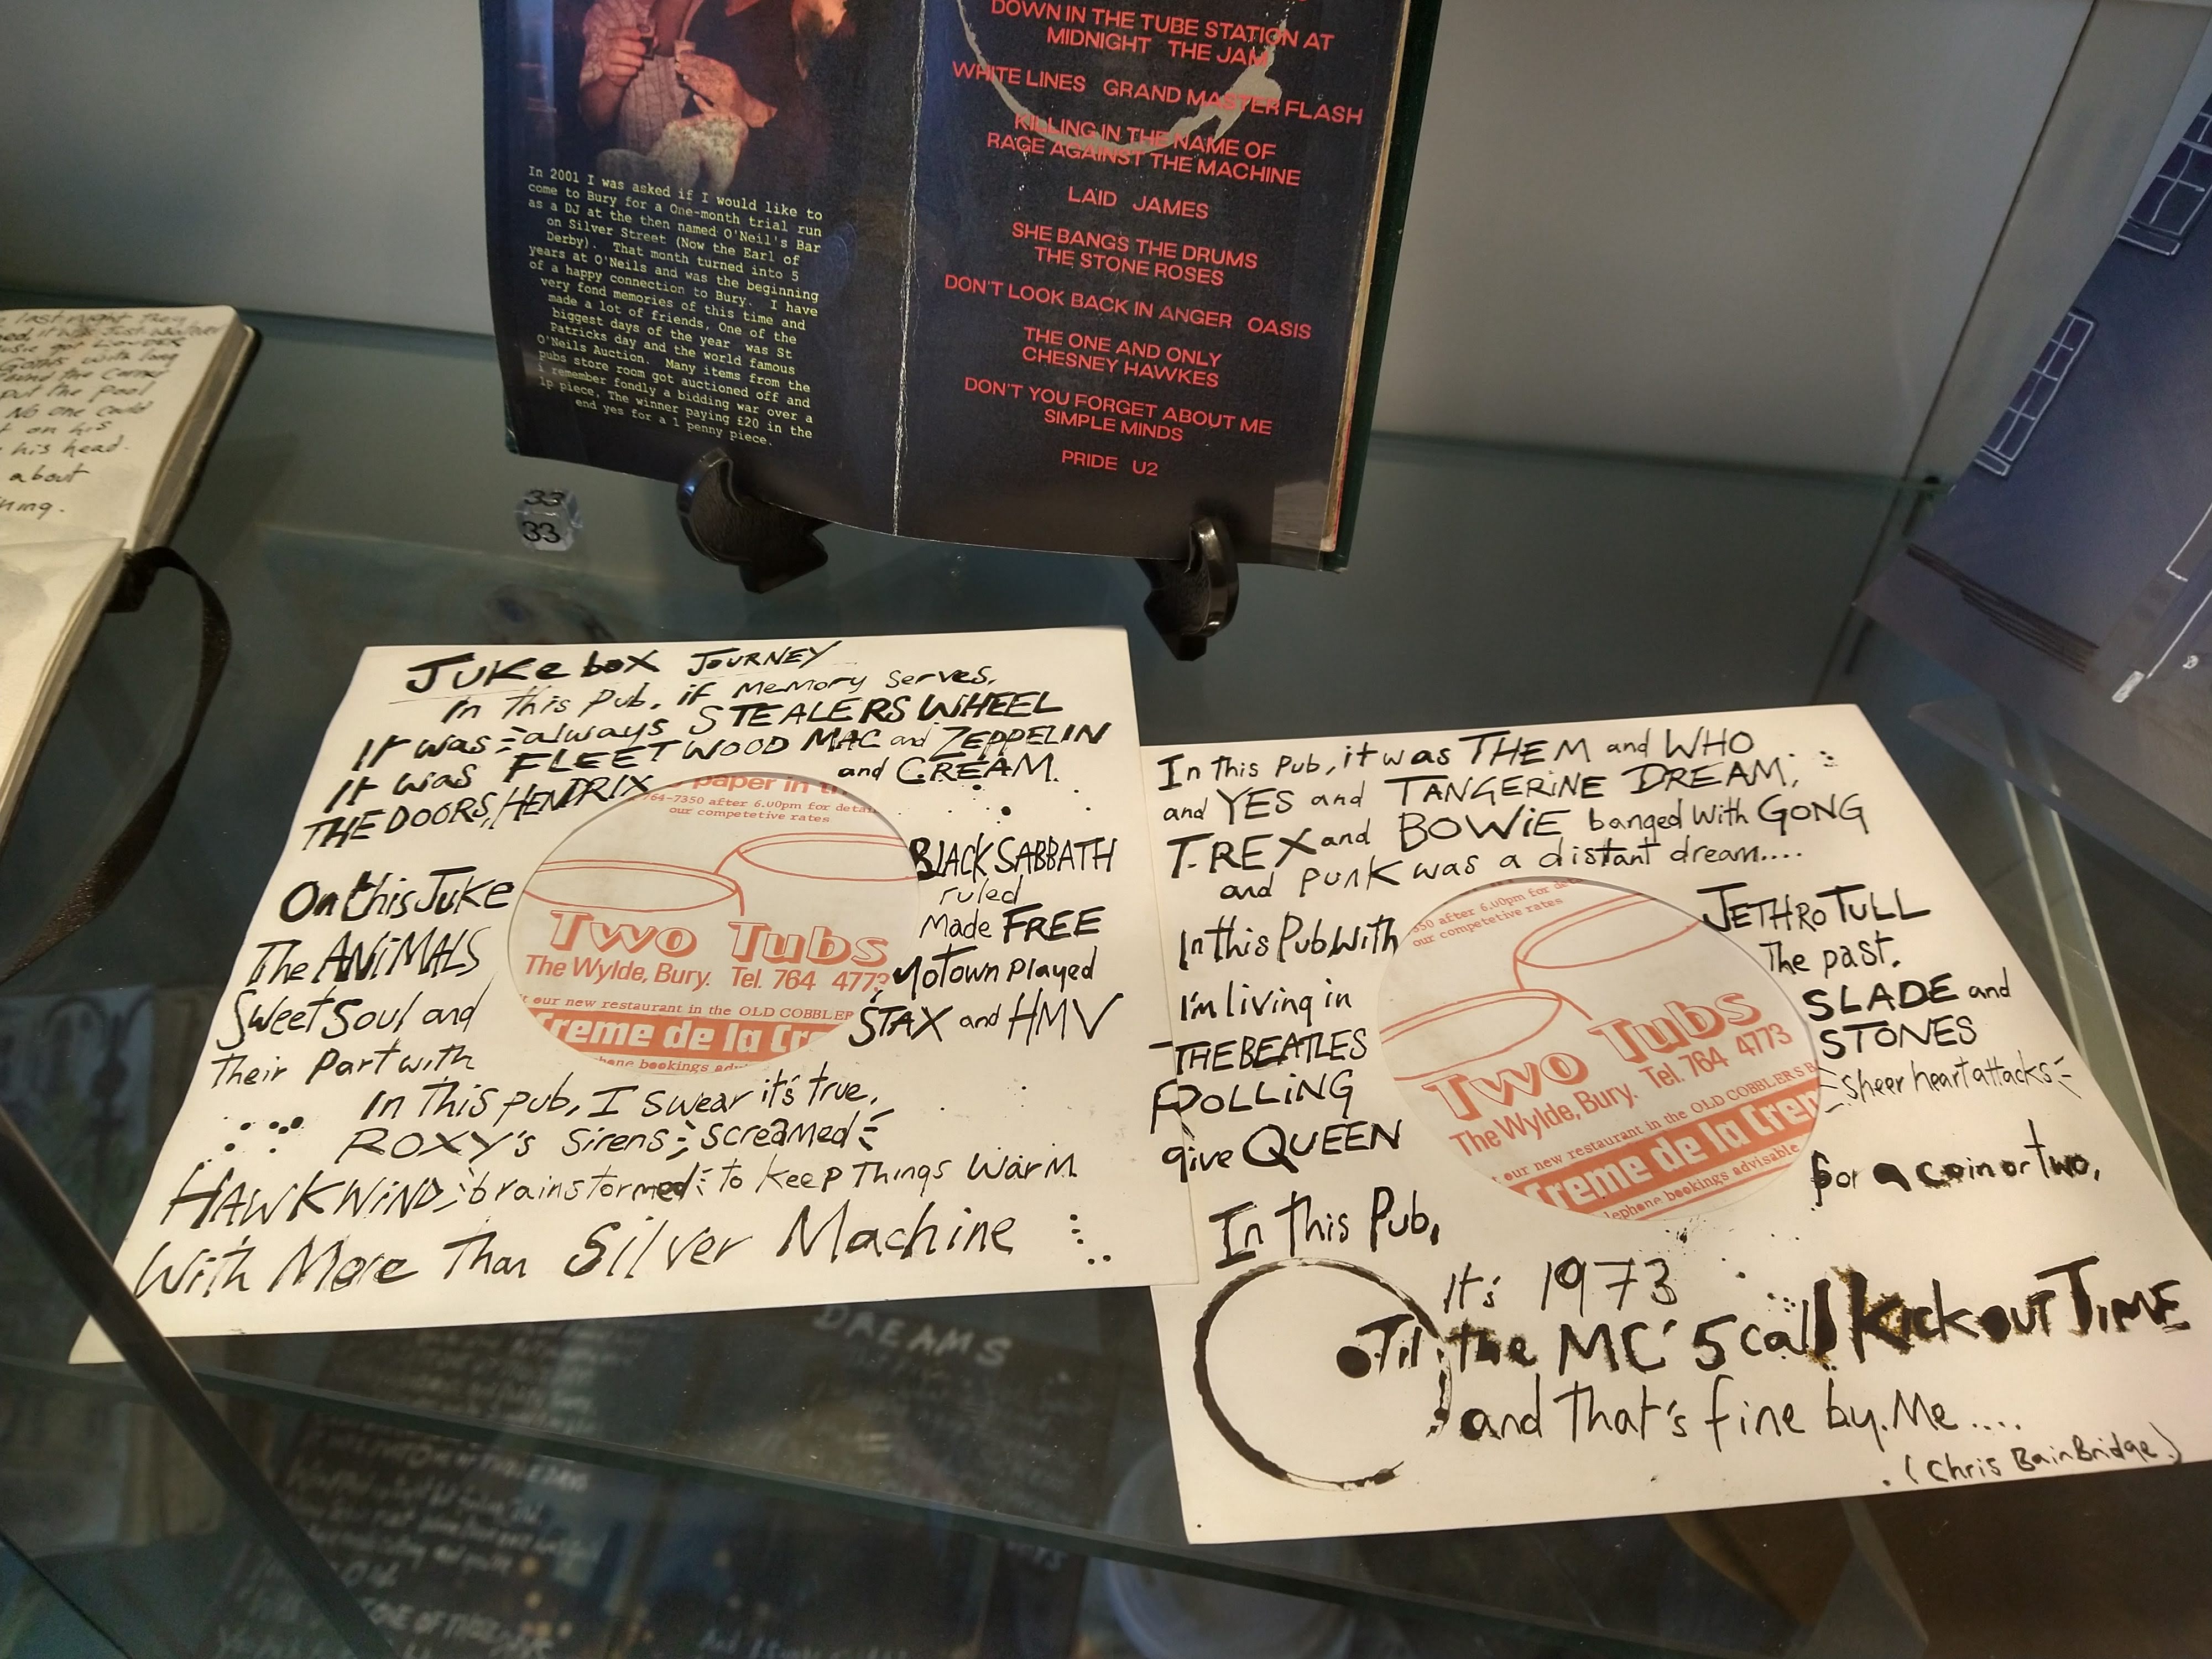 DOWN IN THE TUBE STATION AT
MIDNIGHT THE JAM
WHITE LINES GRAND MASTER FLASH
KILLING IN THE NAME OF
RAGE AGAINST THE MACHINE
LAID JAMES
SHE BANGS THE DRUMS
THE STONE ROSES
DON'T LOOK BACK IN ANGER OASIS
THE ONE AND ONLY
CHESNEY HAWKES
DON'T YOU FORGET ABOUT ME
SIMPLE MINDS
PRIDE U2
In 2001 I was asked if I would like to
come to Bury for a One-month trial run
as a DJ at the then named O'Neil's Bar
on Silver Street (Now the Earl of
Derby). That month turned into 5
years at O'Neils and was the beginning
of a happy connection to Bury. I have
very fond memories of this time and
made a lot of friends, One of the
biggest days of the year was St
Patricks day and the world famous
O'Neils Auction. Many items from the
pubs store room got auctioned off and
i remember fondly a bidding war over a
1p piece, The winner paying £20 in the
end yes for a 1 penny piece.
last night they
it was Just
LOUDER
with long
round the corner
put the pool
No one could
on his
his head.
about
33
33
JUKE box JOURNEY
In this Pub, if memory serves,
It was always STEALERS WHEEL
It was FLEETWOOD MAC and ZEPPELIN
THE DOORS, HENDRIX and CREAM.
On this Juke BLACK SABBATH
ruled
The ANIMALS Made FREE
Sweet Soul and Motown played
their Part with STAX and HMV
In this pub, I swear it's true,
ROXY's Sirens screamed
HAWKWIND, brainstormed to keep Things Warm
With More Than Silver Machine
paper in
764-7350 after 6.00pm for
our competetive rates
Two Tubs
The Wylde, Bury. Tel. 764 4773
our new restaurant in the OLD COBBLER
Creme de la Cr
In this Pub, it was THEM and WHO
and YES and TANGERINE DREAM,
T-REX and BOWIE banged with GONG
and punk was a distant dream....
In this Pub, With JETHRO TULL
I'm living in The past.
THE BEATLES SLADE and
ROLLING STONES
give QUEEN sheer heart attacks
for a coin or two,
In This Pub,
It's 1973
Til the MC'5 call Kick out TIME
and that's fine by. Me ....
(Chris BainBridge)
350 after 6.00pm for
our competetive rates
Two Tubs
The Wylde, Bury. Tel. 764 4773
our new restaurant in the OLD COBBLERS B
Creme de la Crem
lephone bookings advisable
DREAMS